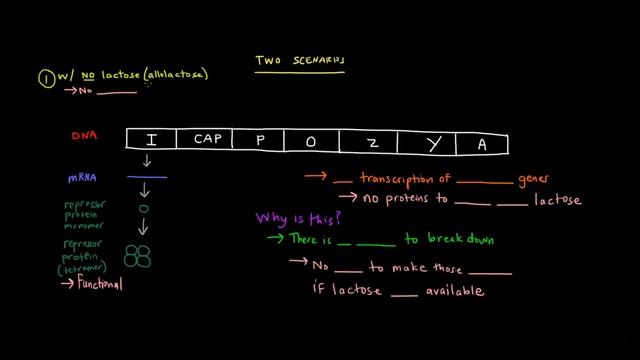 TWO SCENARIOS
1 w/ NO lactose (allolactose)
→ No ______
DNA I CAP P O Z Y A
mRNA
repressor
protein
monomer
repressor
protein
(tetramer)
→ Functional
→ __ transcription of ______ genes
→ no proteins to _____ ___ lactose
Why is this?
→ There is _ _____ to breakdown
→ No ___ to make those ____
if lactose ___ available